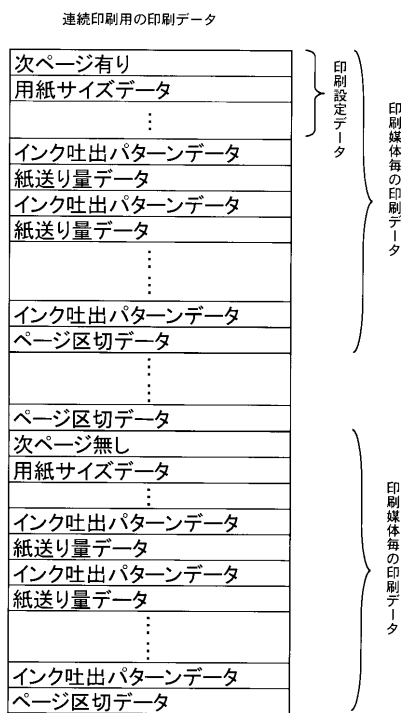 連続印刷用の印刷データ
次ページ有り
用紙サイズデータ
⋮
インク吐出パターンデータ
紙送り量データ
インク吐出パターンデータ
紙送り量データ
⋮
インク吐出パターンデータ
ページ区切データ
⋮
ページ区切データ
次ページ無し
用紙サイズデータ
⋮
インク吐出パターンデータ
紙送り量データ
インク吐出パターンデータ
紙送り量データ
⋮
インク吐出パターンデータ
ページ区切データ
印刷設定データ
印刷媒体毎の印刷データ
印刷媒体毎の印刷データ